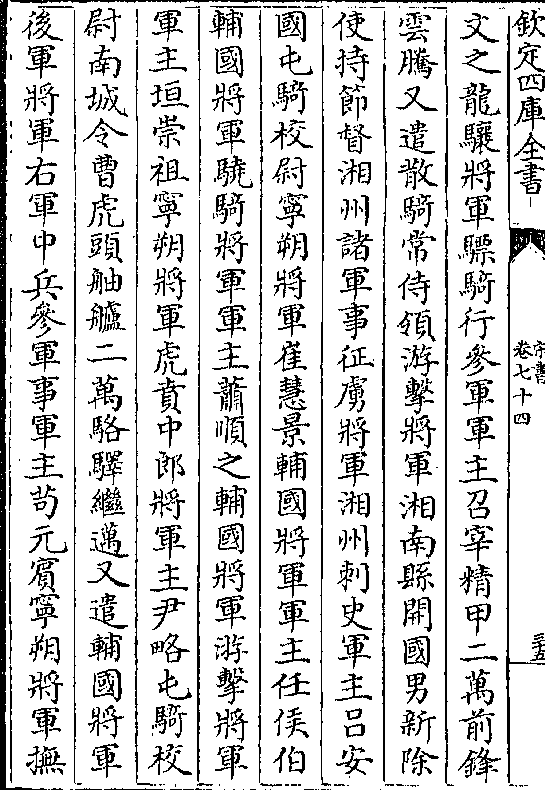 欽定四庫全書
宋書
卷七十四
三五
文之龍驤將軍驃騎行參軍軍主召宰精甲二萬前鋒
雲騰又遣散騎常侍領游擊將軍湘南縣開國男新除
使持節督湘州諸軍事征虜將軍湘州刺史軍主吕安
國屯騎校尉寧朔將軍崔慧景輔國將軍軍主任侯伯
輔國將軍驍騎將軍軍主蕭順之輔國將軍游擊將軍
軍主垣崇祖寧朔將軍虎賁中郎將軍主尹略屯騎校
尉南城令曹虎頭舳艫二萬駱驛繼邁又遣輔國將軍
後軍將軍右軍中兵參軍事軍主苟元賓寧朔將軍撫